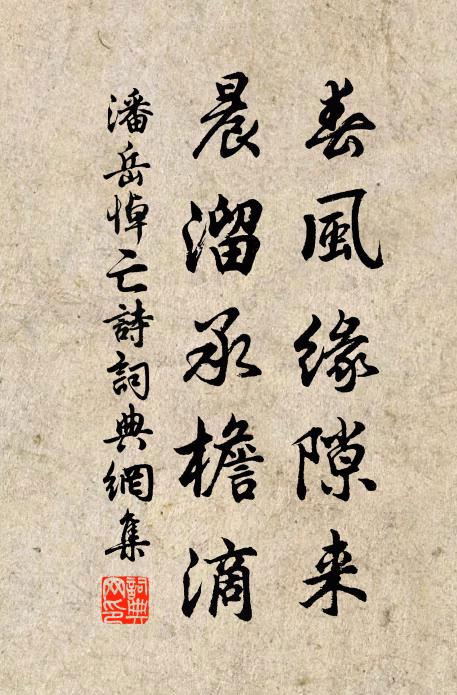 春風緣隙来
晨溜承檐滴
潘岳悼亡詩詞典網集
詞典網印